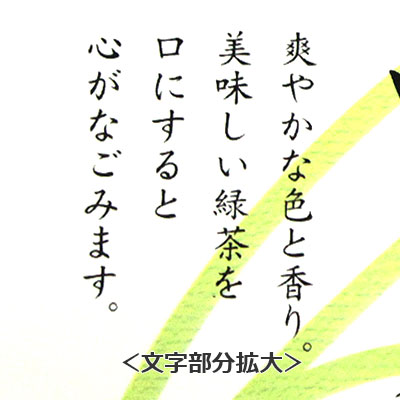 爽やかな色と香り。
美味しい緑茶を
口にすると
心がなごみます。
＜文字部分拡大＞